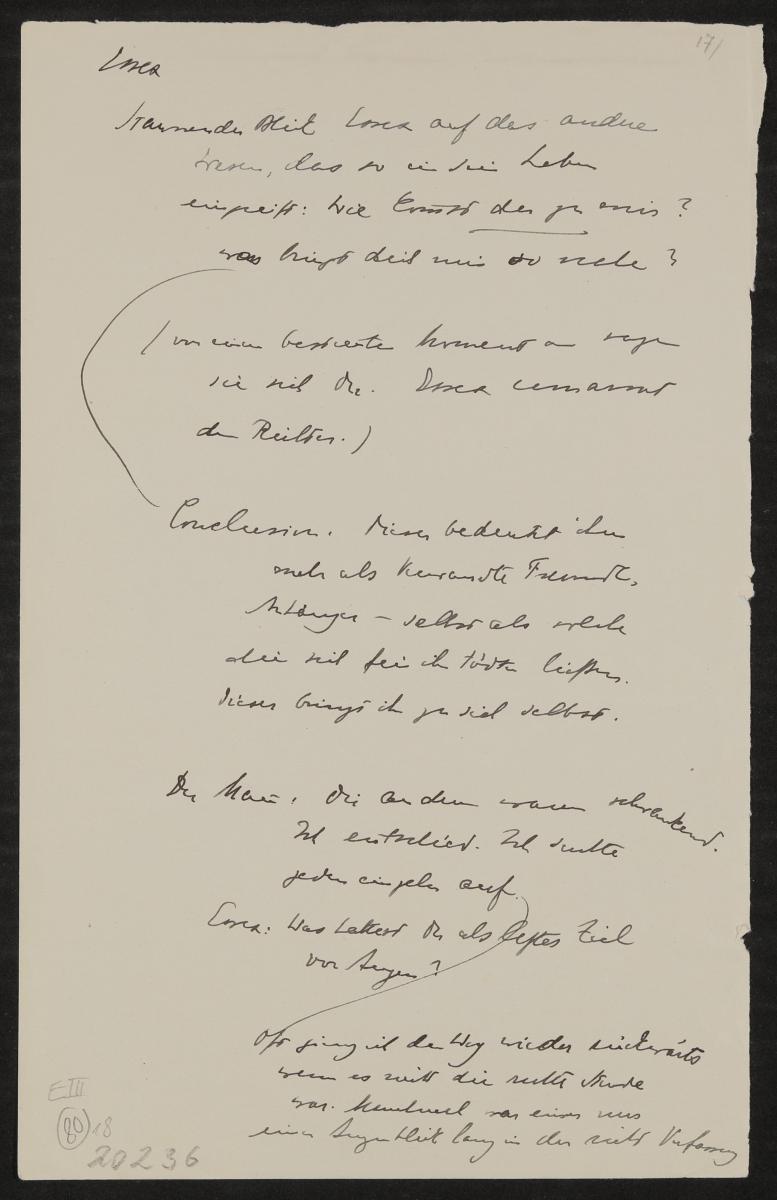 17/
Essex
Staunender Blick Essex auf das andere
Wesen, das so in sein Leben
eingreift: Wie kommst du zu mir?
was bringt dich mir so nahe?
(von einem bestimmten Moment an sagen
sie sich Du. Essex umarmt
den Reiter.)
Conclusion. Dieser bedeutet ihm
mehr als Verwandte Freunde,
Anhänger – selbst als solche
die sich für ihn tödten liessen.
dieser bringt ihn zu sich selbst.
Der Mann: die andern waren schwankend.
Ich entschied. Ich suchte
jeden einzeln auf.
Essex: Was hattest Du als letztes Ziel
vor Augen?
Oft ging ich den Weg wieder rückwärts
wenn es nicht die rechte Stunde
war. Manchmal war einer nur
einen Augenblick lang in der Verfassung
E III
80 18
20236